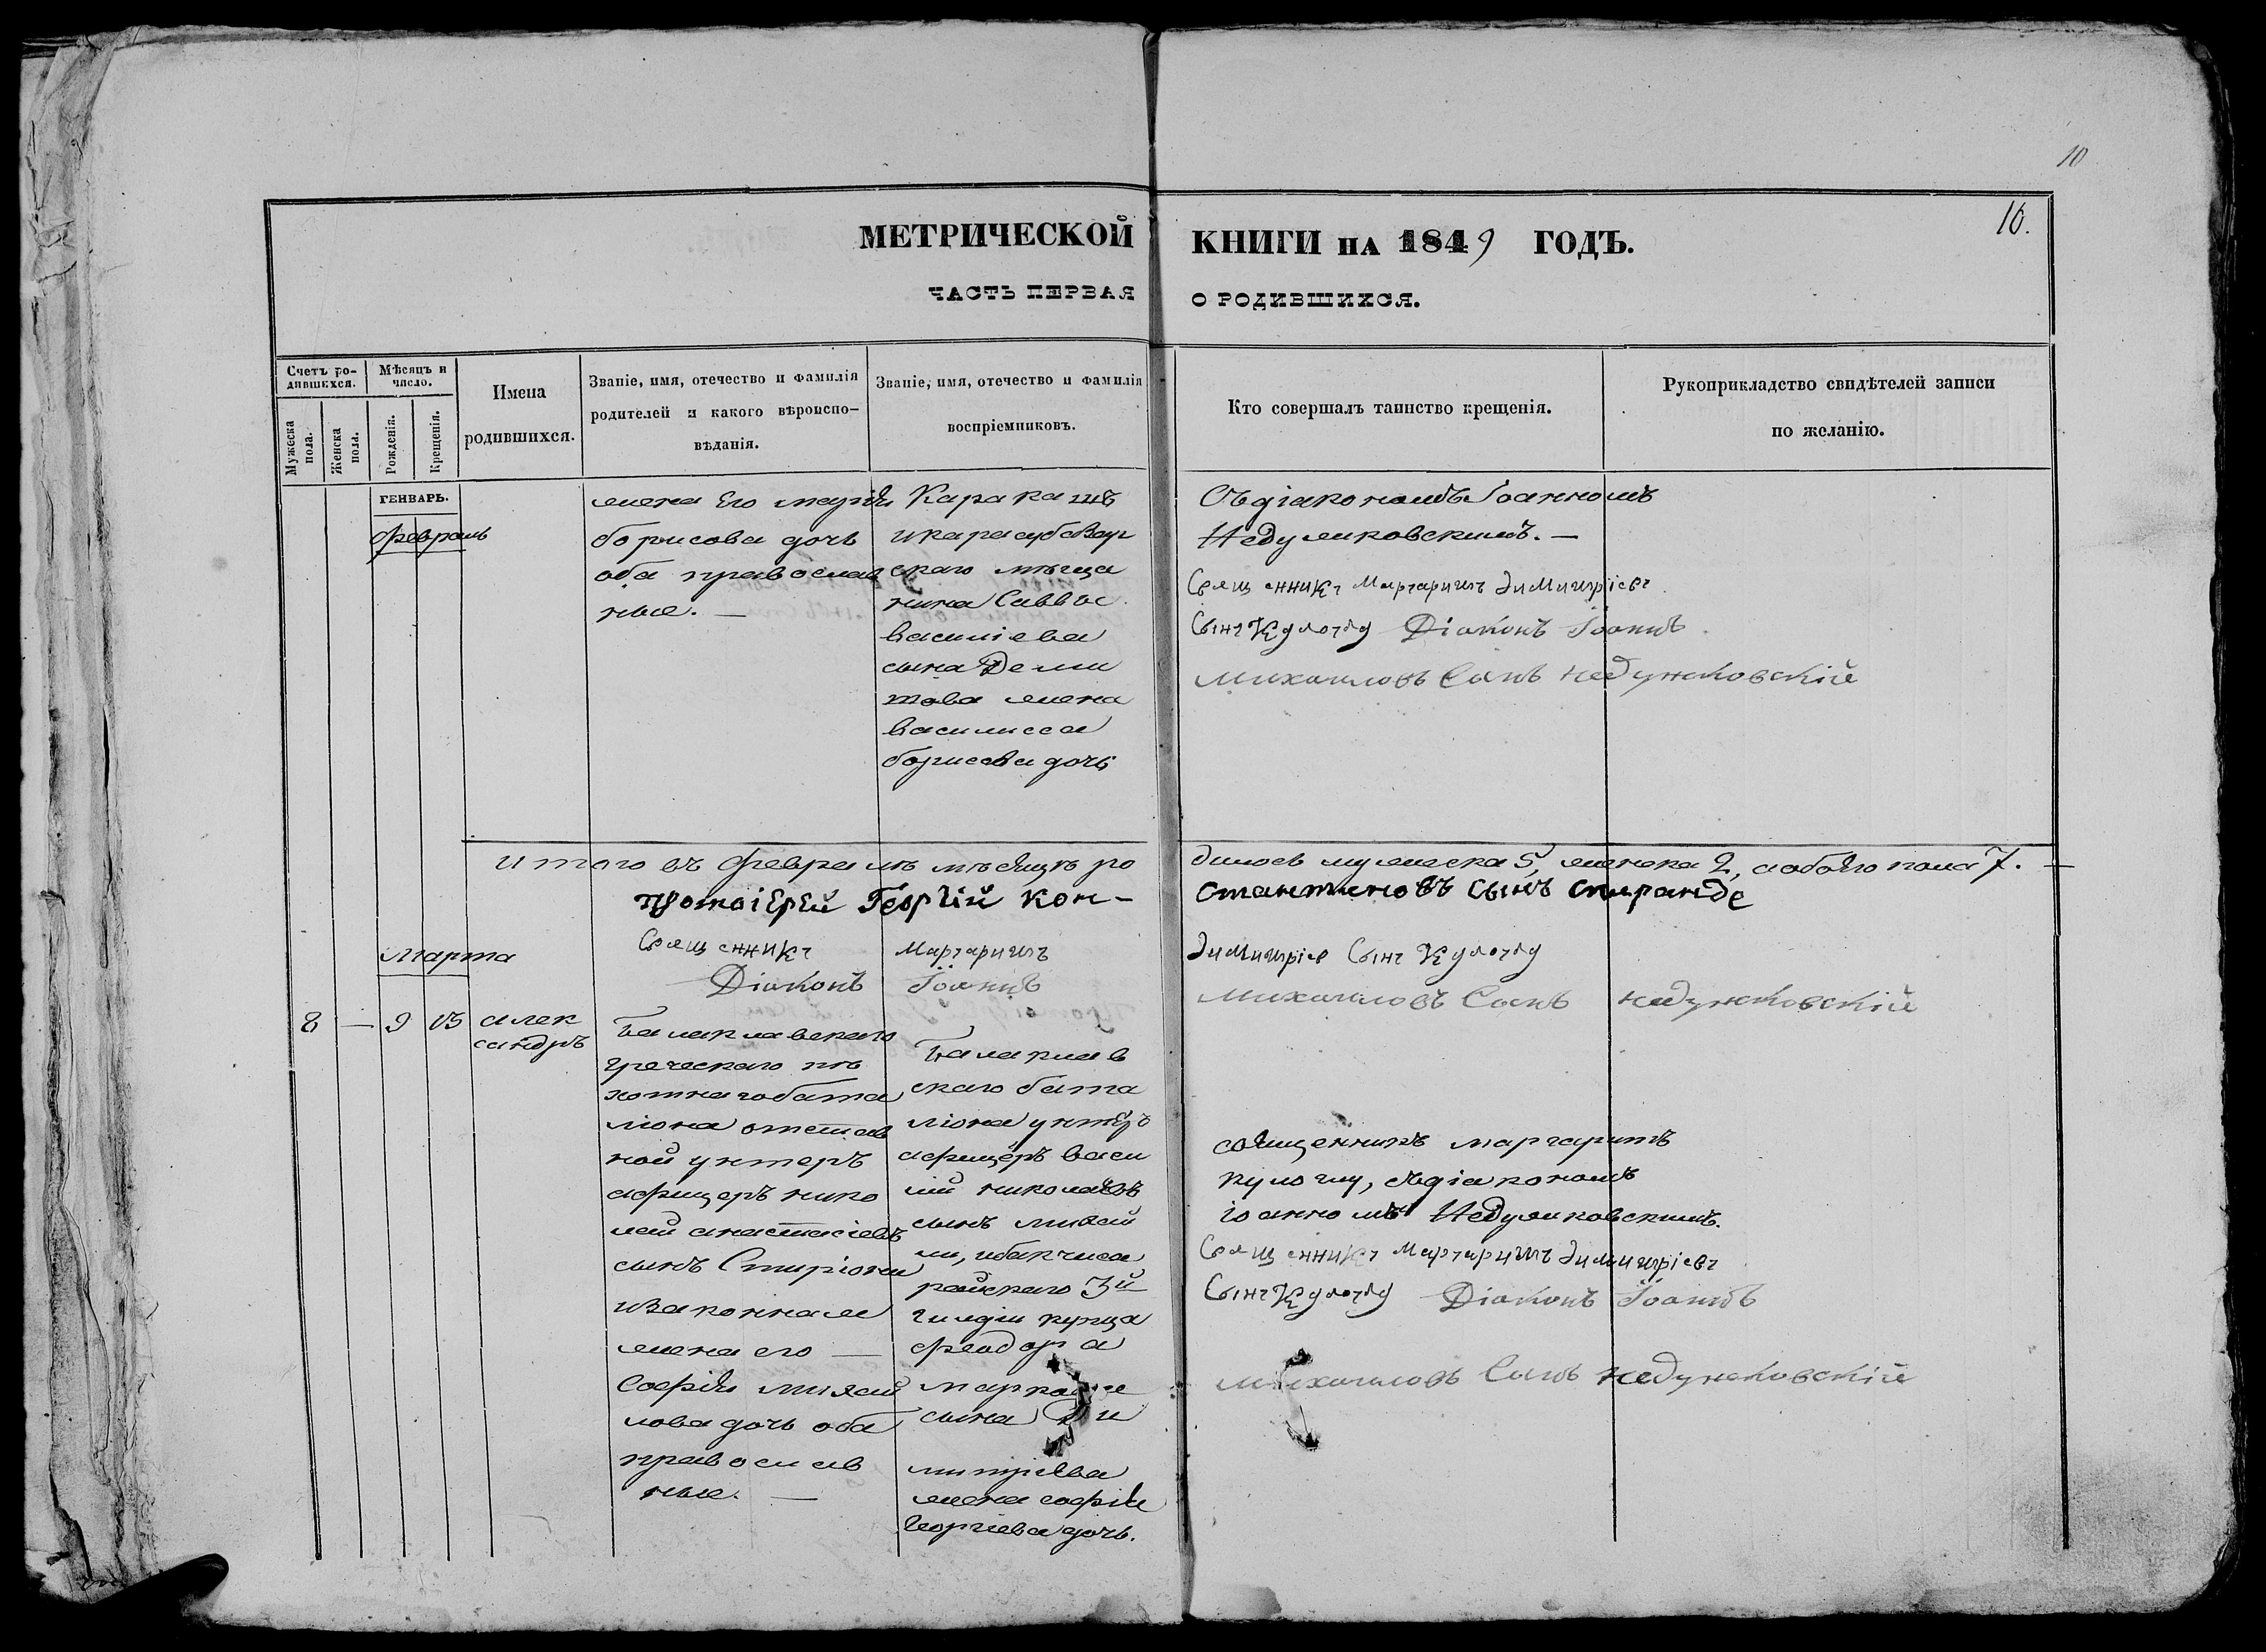 10
16.
МЕТРИЧЕСКОЙ КНИГИ НА 1849 ГОДЪ.
ЧАСТЬ ПЕРВАЯ О РОДИВШИХСЯ.
Счетъ родившихся.
Мужеска пола.
Женска пола.
Мѣсяцъ и число.
Рожденія.
Крещенія.
Имена
родившихся.
Званіе, имя, отечество и фамилія
родителей и какого вѣроиспо-
вѣданія.
Званіе, имя, отечество и фамилія
воспріемниковъ.
Кто совершалъ таинство крещенія.
Рукоприкладство свидѣтелей записи
по желанію.
ГЕНВАРЬ.
Февраль
жена Его марія
борисова дочь
оба православ
ные. —
Каракашъ
икарасубазар
скаго мѣща
нина Саввы
василіева
сына Деми
това жена
василисса
борисова дочь
Съдіакономъ Іоанномъ
Недужковскимъ. —
Священникъ Маргаритъ Димитріевъ
Сынъ Кулоглу Діаконъ Іоаннъ
михаиловъ Сынъ недужковскій
итого въ февралѣ мѣсяцѣ ро
дилось мужеска 5, женска 2, аобоего пола 7. —
протоіерей Георгій Кон-
стантиновъ Сынъ спиранде
Священникъ Маргаритъ
Димитріев Сынъ Кулоглу
Діаконъ Іоаннъ
михаиловъ Сынъ недужковскій
марта
8 — 9 15
алек
сандръ
Балаклавскаго
греческаго пѣ
хотнагобата
ліона отстав
ной унтеръ
афицеръ нико
лай анастасіевъ
сынъ Спиріони
изаконная
жена его —
Софія михаи
лова дочь оба
православ
ные. —
Балаклав
скаго бата
ліона унтеръ
афицеръ васи
лій николаевъ
сынъ
ли, ибакчиса
райскаго 3й
гилдіи купца
феодора
сына Ди
митріева
жена софія
Георгіева дочь.
священникъ маргаритъ
кулоглу, съдіакономъ
іоанномъ Недужковскимъ.
Священникъ Маргаритъ Димитріевъ
Сынъ Кулоглу Діаконъ Іоаннъ
михаиловъ Сынъ недужковскій